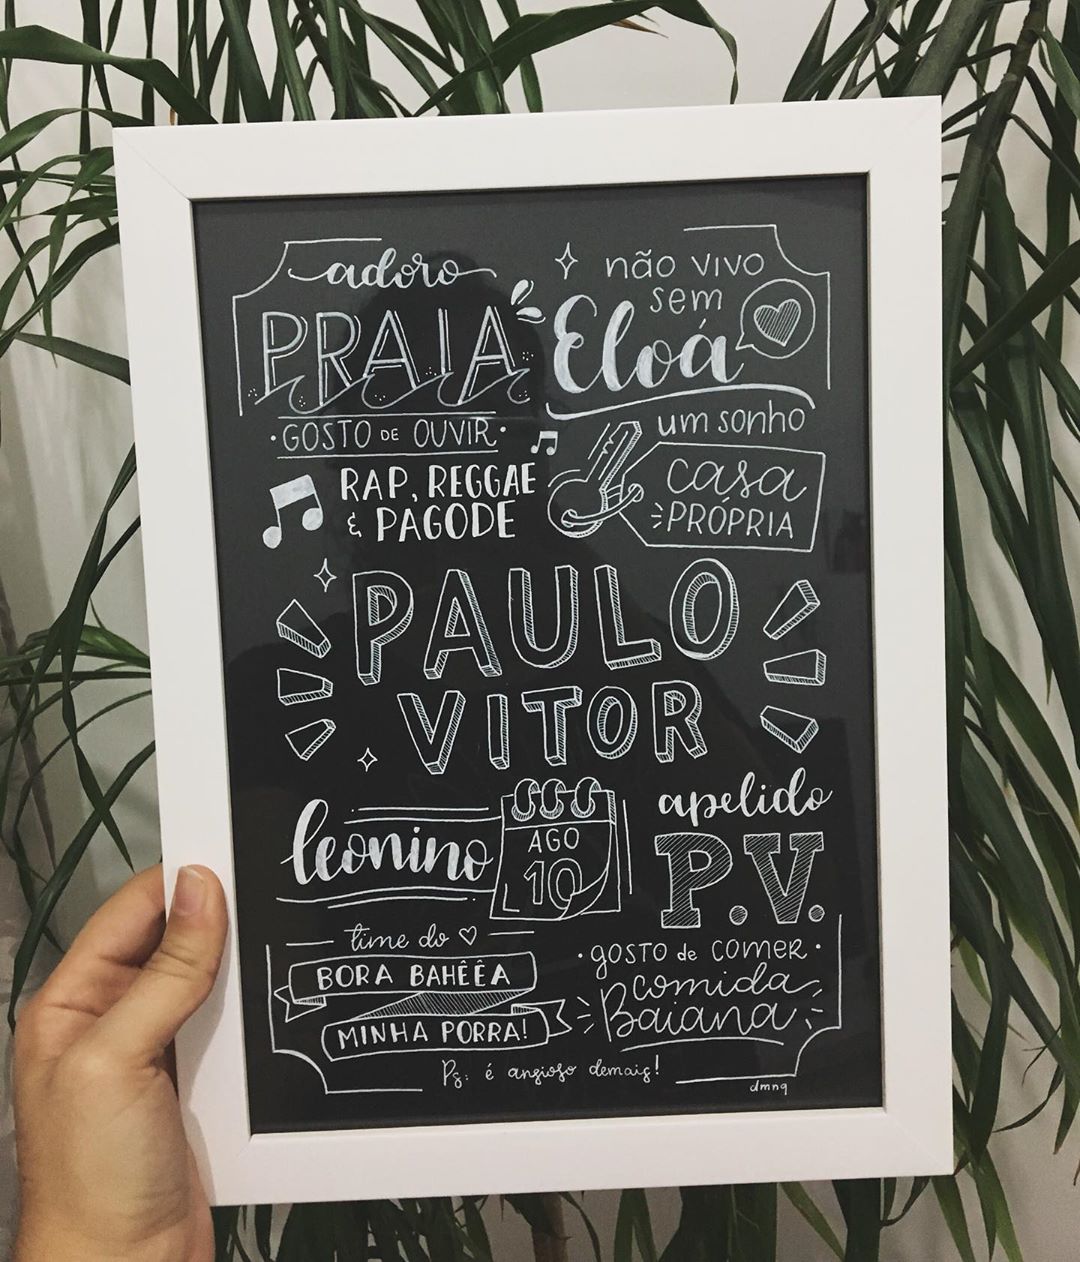 adoro
PRAIA
não vivo
sem
Eloá
GOSTO DE OUVIR
RAP, REGGAE
& PAGODE
um sonho
casa
PRÓPRIA
PAULO
VITOR
leonino
AGO
10
apelido
P.V.
time do
BORA BAHÊÊA
MINHA PORRA!
GOSTO de COMER
comida
Baiana
Ps: é ansioso demais!
dmnq